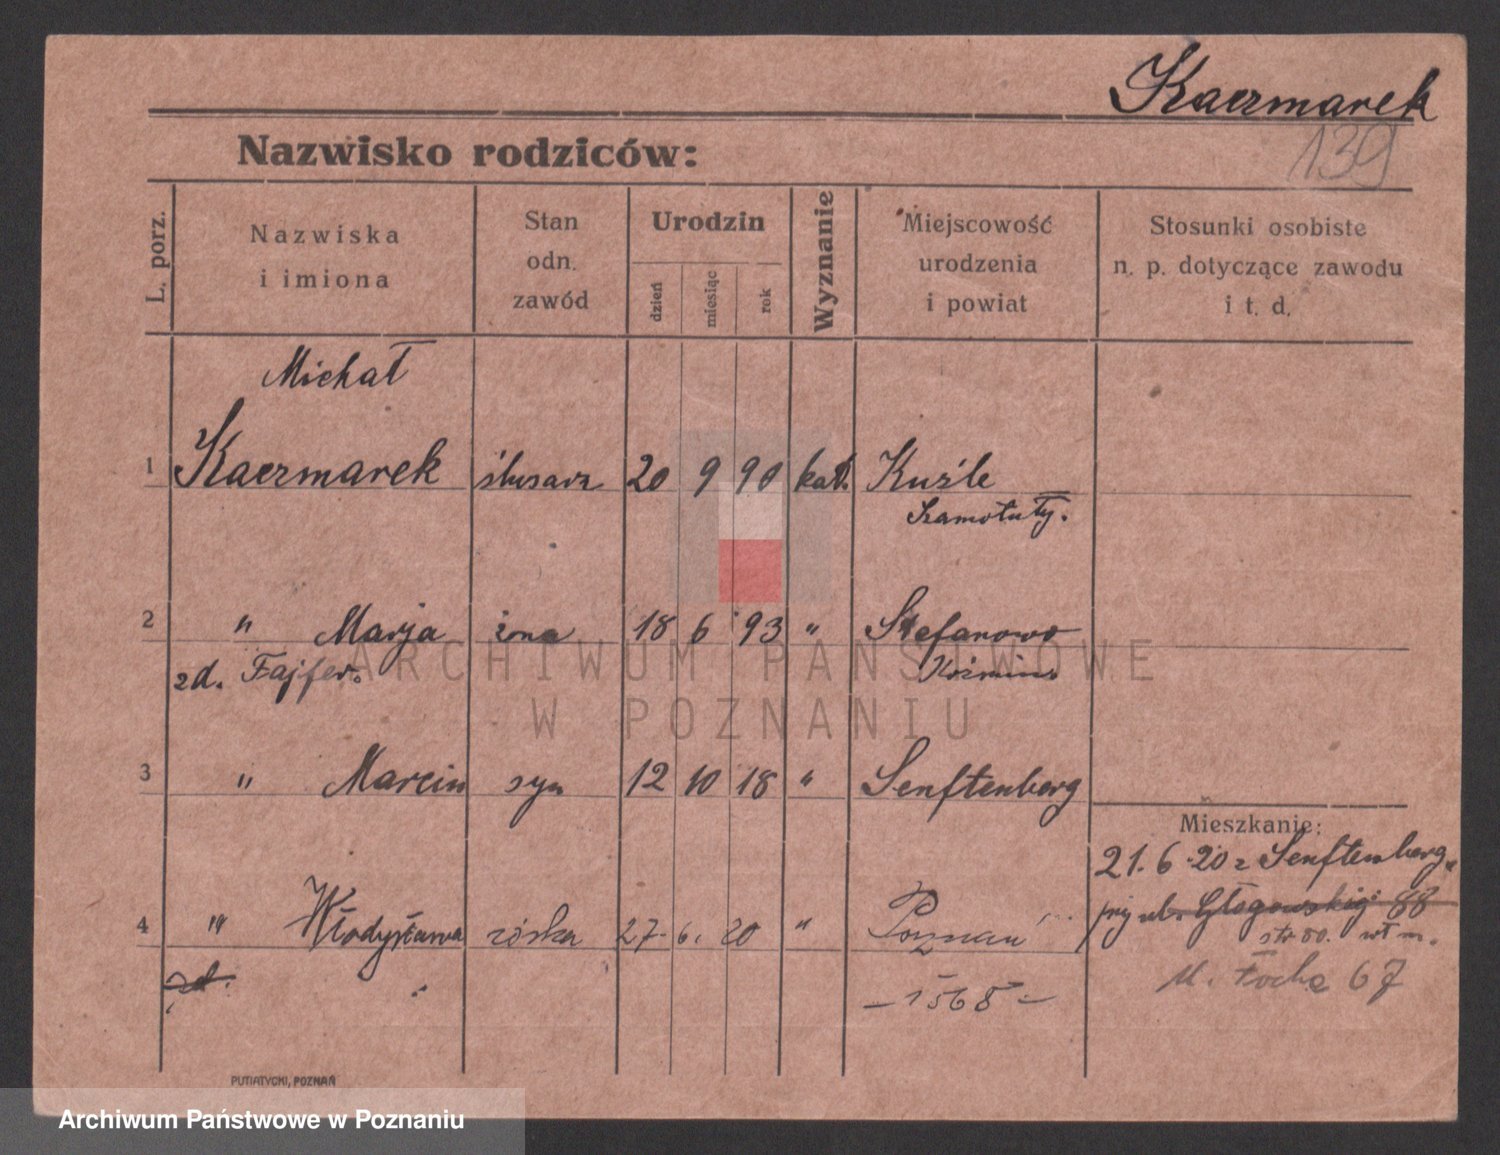 Kaczmarek
139
Nazwisko rodziców:
L. porz.
Nazwiska
i imiona
Stan
odn.
zawód
Urodzin
dzień
miesiąc
rok
Wyznanie
Miejscowość
urodzenia
i powiat
Stosunki osobiste
n. p. dotyczące zawodu
i t. d.
Michał
1 Kaczmarek ślusarz 20 9 90 kat. Kuźle
Szamotuły.
2 " Marja żona 18 6 93 " Stefanowo
zd. Fajfer. Koźmin
ARCHIWUM PAŃSTWOWE
W POZNANIU
3 " Marcin syn 12 10 18 " Senftenberg
Mieszkanie:
21. 6. 20 z Senftenberg
przy ul. Głogowskiej 88
4 " Władysława córka 27. 6. 20 " Poznań
zd.
- 1568 -
ul. Focha 67
PUTIATYCKI, POZNAŃ
Archiwum Państwowe w Poznaniu